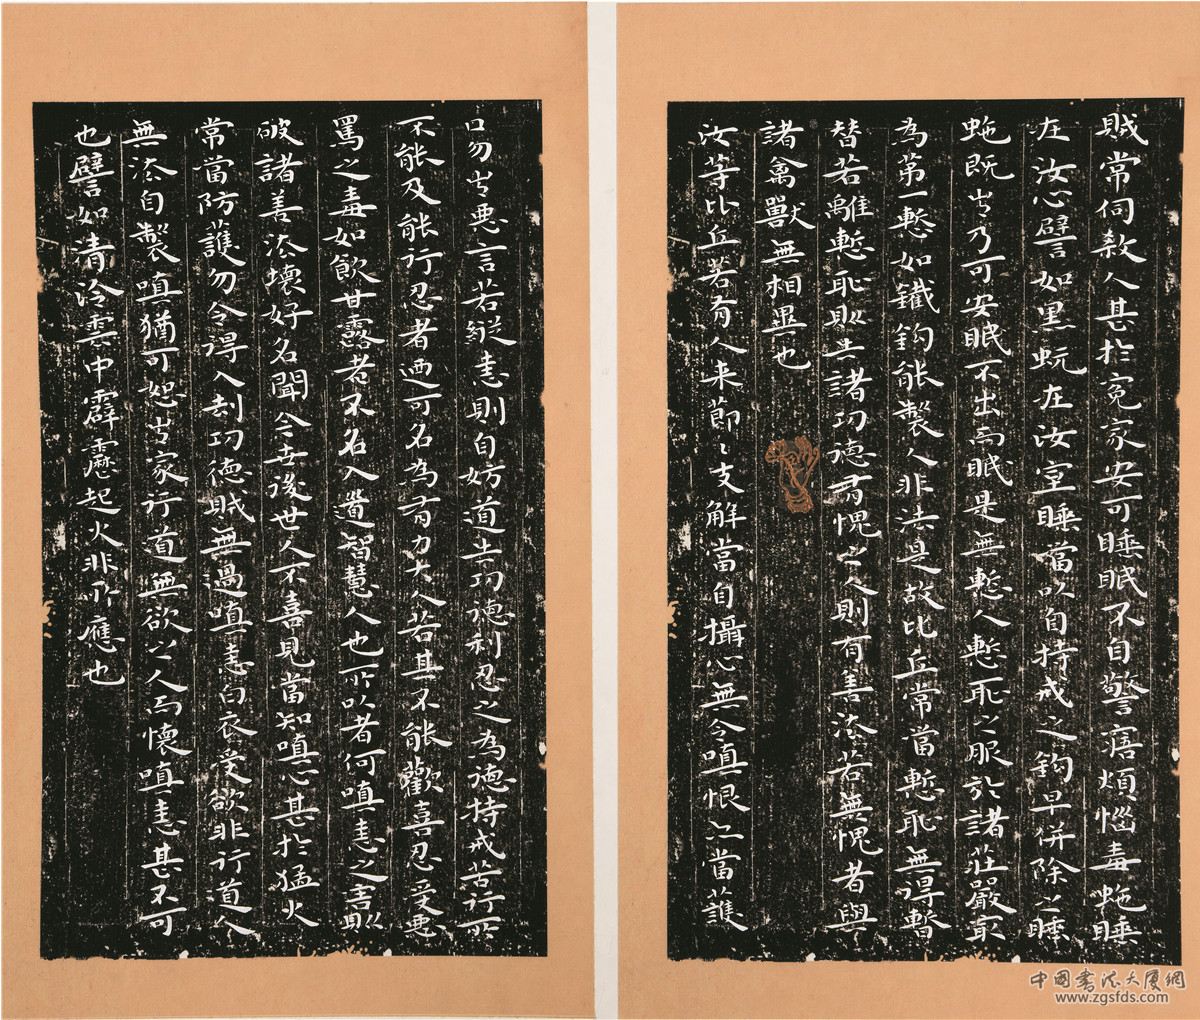 賊常伺煞人甚於寃家安可睡眠不自警寤煩惱毒虵睡
在汝心譬如黑蚖在汝室睡當以自持戒之鉤早併除之睡
虵既出乃可安眠不出而眠是無慙人慙恥之服於諸莊嚴最
為第一慙如鐵鉤能製人非法是故比丘常當慙恥無得暫
替若離慙恥則失諸功德有愧之人則有善法若無愧者與
諸禽獸無相異也
汝等比丘若有人来節〻支解當自攝心無令嗔恨亦當護
口勿出惡言若縱恚則自妨道失功德利忍之為德持戒苦行所
不能及能行忍者迺可名為有力大人若其不能歡喜忍受惡
罵之毒如飲甘露者不名入道智慧人也所以者何嗔恚之害則
破諸善法壞好名聞今世後世人不喜見當知嗔心甚於猛火
常當防護勿令得入劫功德賊無過嗔恚白衣受欲非行道人
無法自製嗔猶可恕出家行道無欲之人而懷嗔恚甚不可
也譬如清冷雲中霹靂起火非所應也
中國書法大廈網
www.zgsfds.com